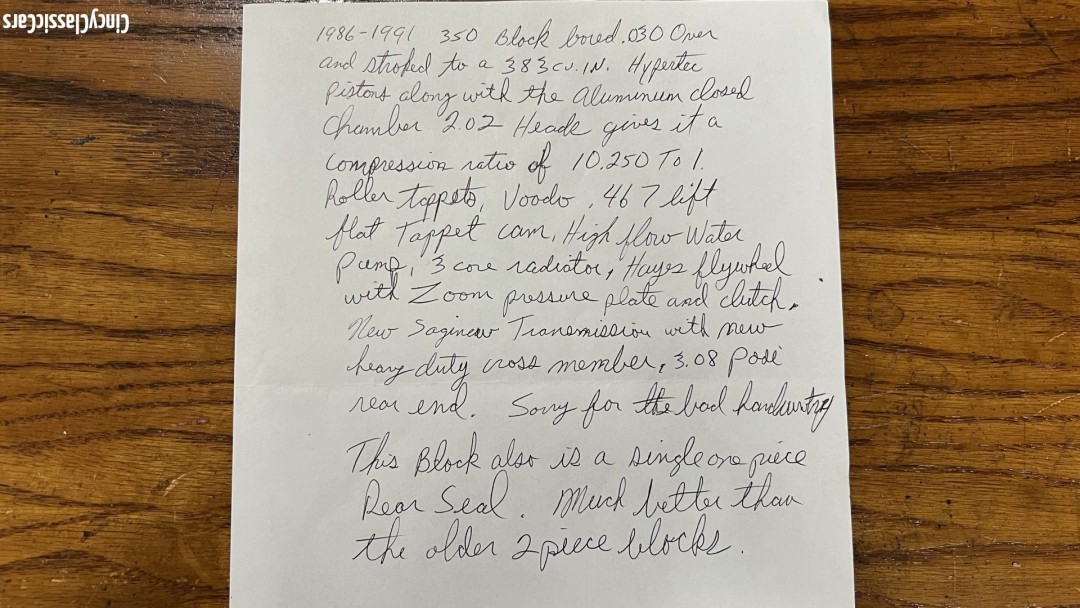 CincyClassicCars
1986-1991 350 Block bored .030 Over
and stroked to a 383 cu. IN. Hypertec
pistons along with the Aluminum closed
Chamber 2.02 Heads gives it a
compression ratio of 10.250 To 1.
Roller tappets, Voodo .467 lift
flat Tappet cam, High flow Water
Pump, 3 core radiator, Hayes flywheel
with Zoom pressure plate and clutch.
New Saginaw Transmission with new
heavy duty cross member, 3.08 Posi
rear end. Sorry for the bad handwriting
This Block also is a single one piece
Rear Seal. Much better than
the older 2 piece blocks.